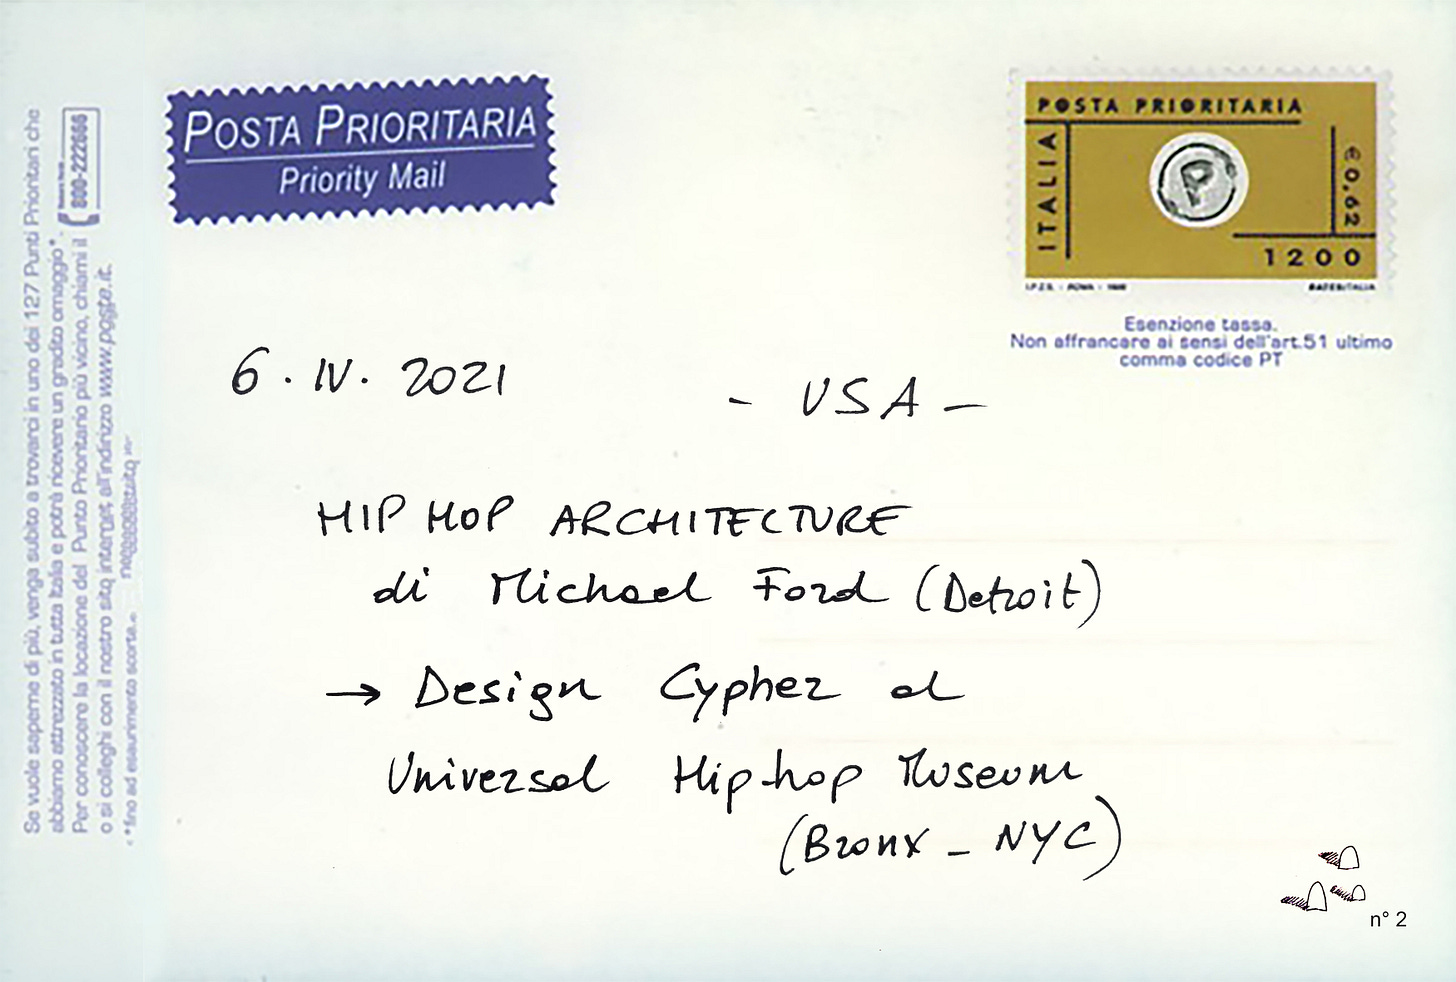 Se vuole saperne di più, venga subito a trovarci in uno dei 127 Punti Prioritari che
abbiamo attrezzato in tutta Italia e potrà ricevere un gradito omaggio*.
Per conoscere la locazione del Punto Prioritario più vicino, chiami il
800-222666
o si colleghi con il nostro sito internet all'indirizzo www.poste.it.
*fino ad esaurimento scorte
POSTA PRIORITARIA
Priority Mail
POSTA PRIORITARIA
ITALIA
P
€0,62
1200
I.P.Z.S. - ROMA - 1999
Esenzione tassa.
Non affrancare ai sensi dell'art.51 ultimo
comma codice PT
6. IV. 2021
- USA -
HIP HOP ARCHITECTURE
di Michael Ford (Detroit)
→ Design Cypher al
Universal Hip-hop Museum
(Bronx - NYC)
n° 2